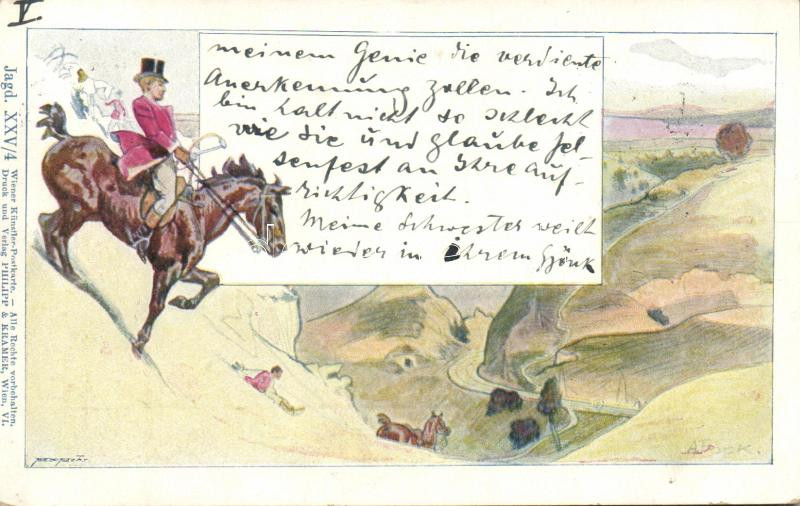 V
meinem Genie die verdiente
Anerkennung zollen. Ich
bin halt nicht so schlecht
wie Sie und glaube fel-
senfest an Ihre Auf-
richtigkeit.
Meine Schwester weilt
wieder in Ihrem
Jagd. XXV/4 Wiener Künstler-Postkarte. — Alle Rechte vorbehalten.
Druck und Verlag PHILIPP & KRAMER, Wien, VI.